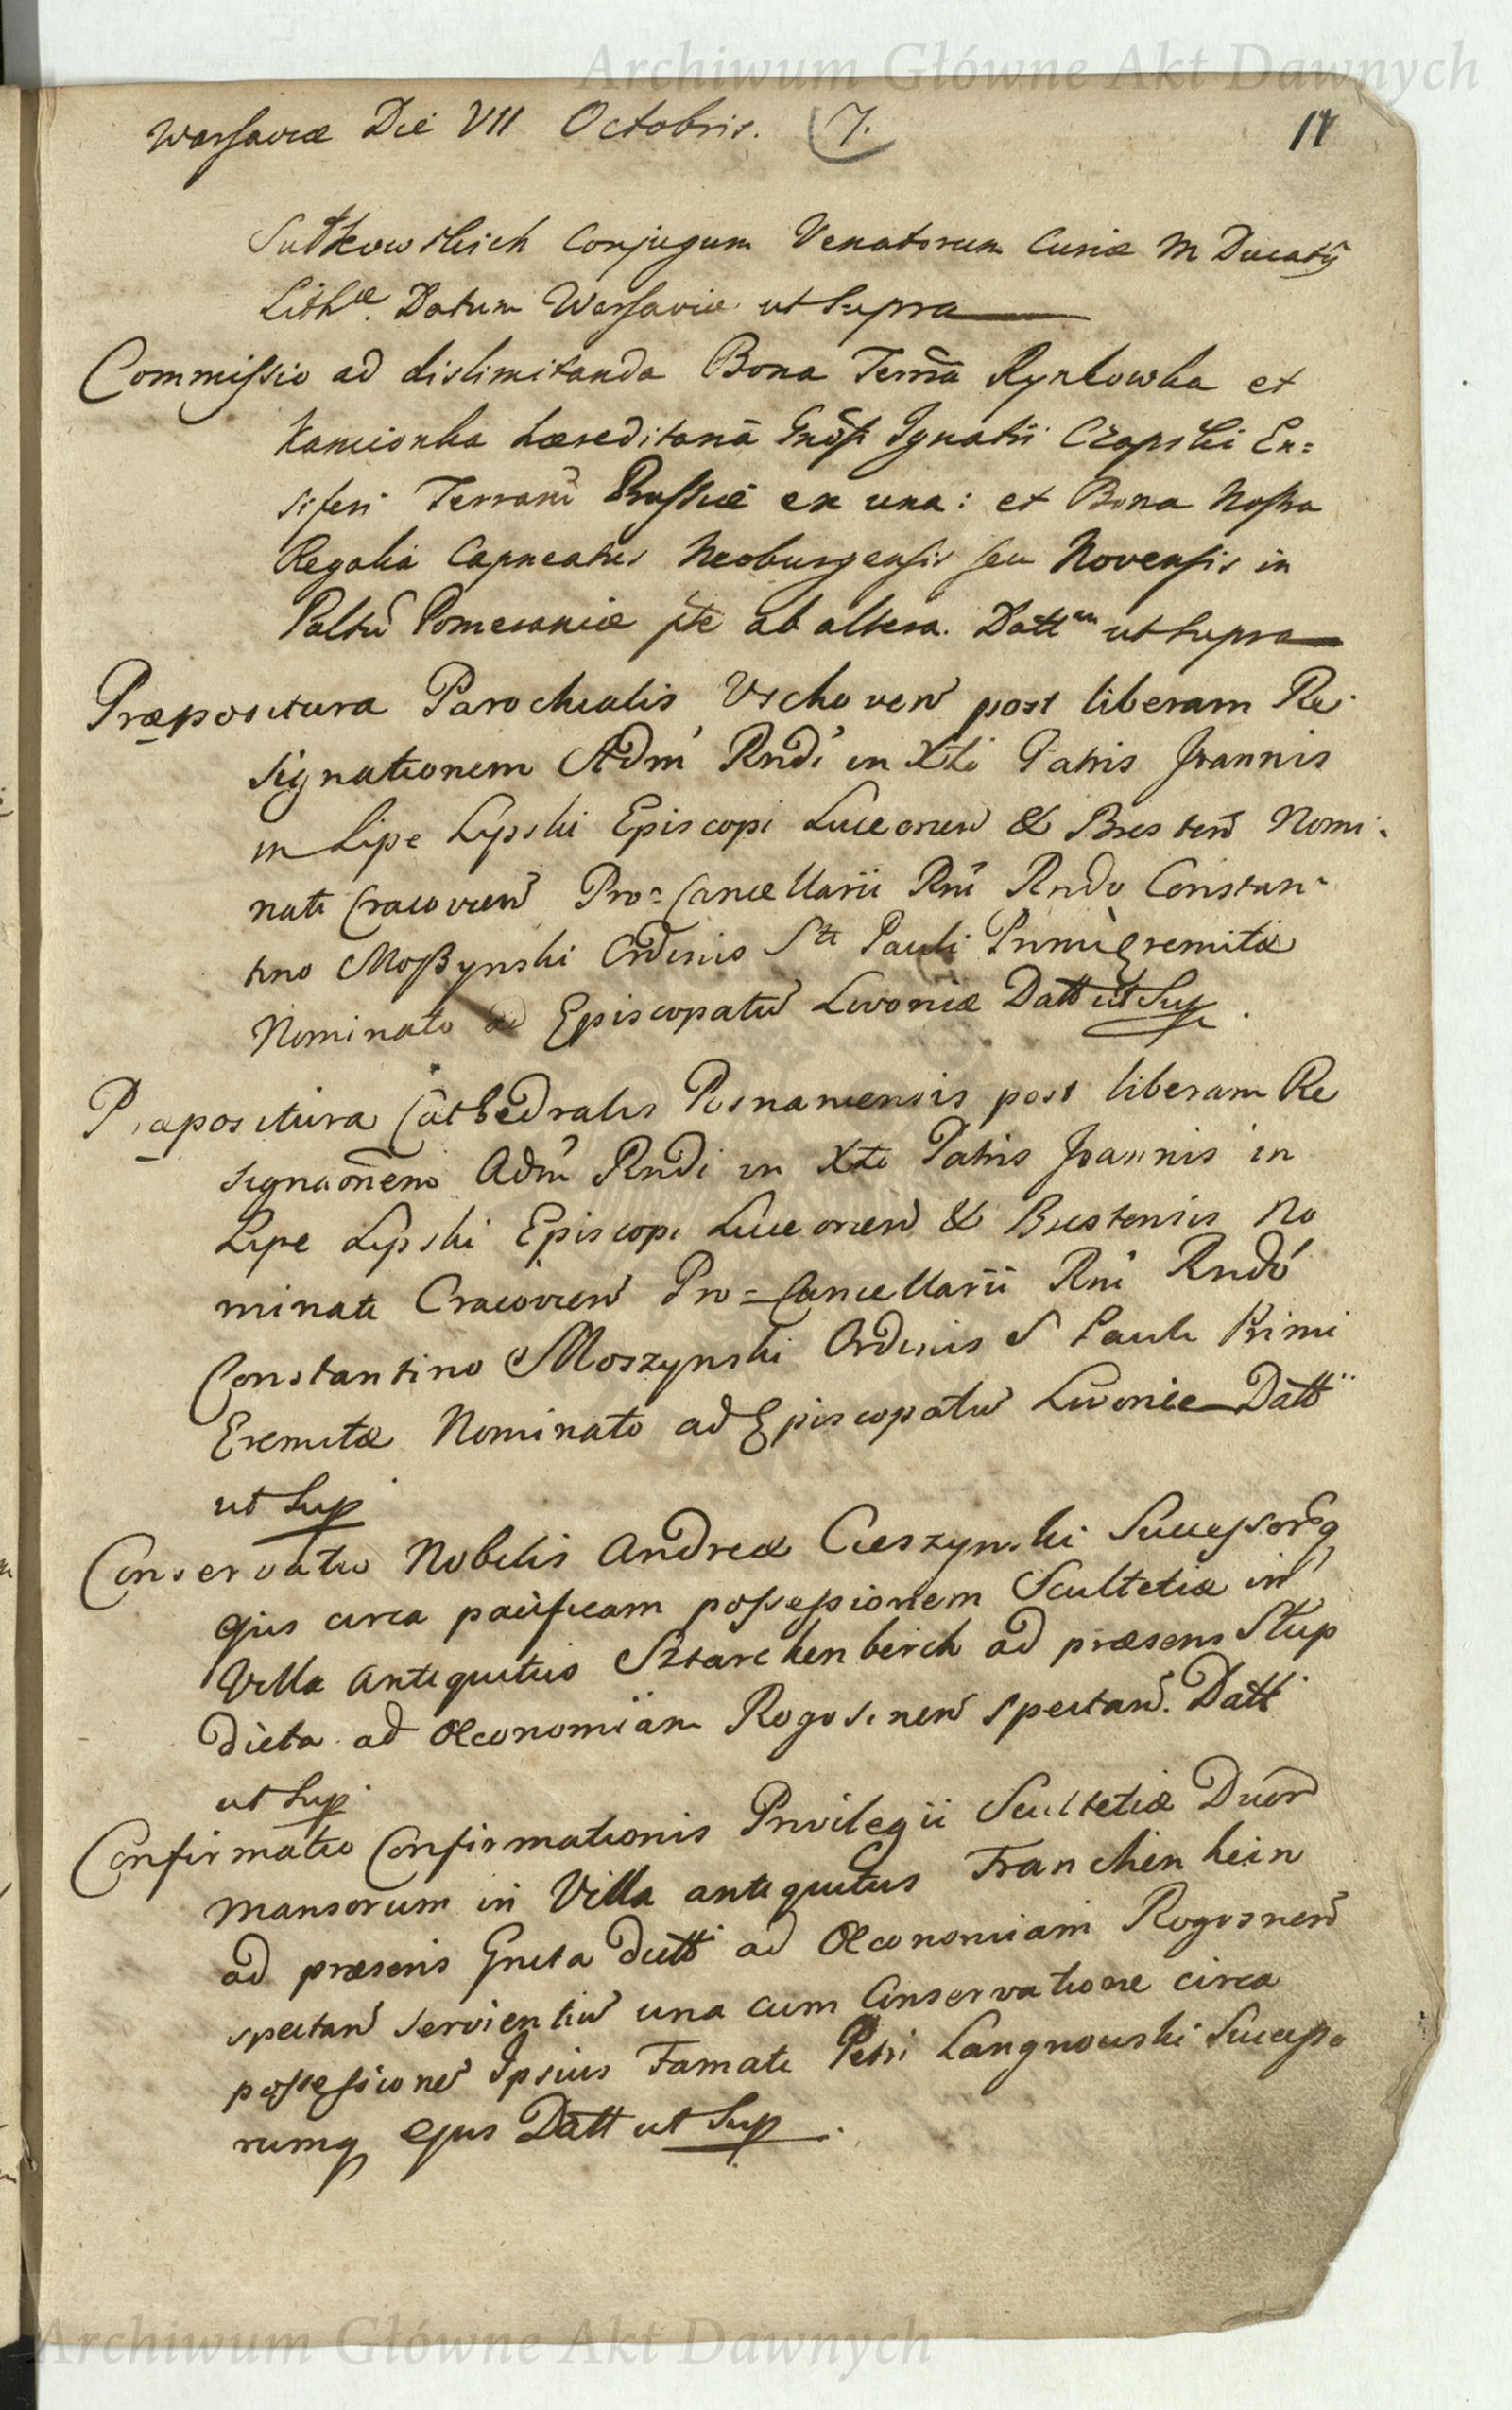 Archiwum Główne Akt Dawnych
Warsaviæ Die VII Octobris. 7. 17
Sułkowskich Conjugum Venatorum Curiæ M Ducatûs
Lithæ. Datum Warsaviæ ut supra
Commissio ad dislimitanda Bona Terrã Rynkowka et
Kamionka hæreditariã Gnosi Ignatii Czapski En=
siferi Terrarũ Prussiæ ex una: et Bona Nostra
Regalia Capneatus Neoburgensis seu Novensis in
Paltũ Pomeraniæ pte ab altera. Dattum ut supra
Præpositura Parochialis Vschoven post liberam Re
signationem Adm Rndi in Xto Patris Joannis
in Lipe Lipski Episcopi Luceorien & Bresten Nomi
nati Cracovien Pro=Cancellarii Rni Rndo Constan
tino Moszynski Ordinis Sti Pauli Primi Eremitæ
Nominato ad Episcopatũ Livoniæ Datt ut Sup.
Præpositura Cathedralis Posnaniensis post liberam Re
signaõnem Adm Rndi in Xto Patris Joannis in
Lipe Lipski Episcopi Luceorien & Brestensis No
minati Cracovien Pro=Cancellarii Rni Rndo
Constantino Moszynski Ordinis S Pauli Primi
Eremitæ Nominato ad Episcopatũ Livoniæ Datt
ut Sup
Conservatio Nobilis Andreæ Cieszynski Successorq
ejus circa pacificam possessionem Scultetiæ in
Villa antiquitus Sztarchenberch ad præsens Słup
dicta ad Œconomiam Rogosinen spectan. Datt
ut Sup.
Confirmatio Confirmationis Privilegii Scultetiæ Duor
mansorum in Villa antiquitus Franchenhein
ad præsens Gruta dictt ad Œconomiam Rogosnen
spectan servientiũ una cum Conservatione circa
possessionẽ Ipsius Famati Petri Langnowski Successo
rumq ejus Datt ut Sup.
Archiwum Główne Akt Dawnych